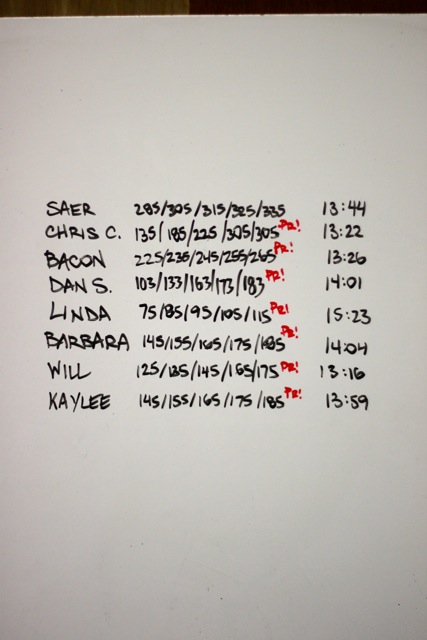 SAER 285/305/315/325/335 13:44
CHRIS C. 135/185/225/305/305 PR! 13:22
BACON 225/235/245/255/265 PR! 13:26
DAN S. 103/133/163/173/183 PR! 14:01
LINDA 75/85/95/105/115 PR! 15:23
BARBARA 145/155/165/175/185 PR! 14:04
WILL 125/135/145/165/175 PR! 13:16
KAYLEE 145/155/165/175/185 PR! 13:59